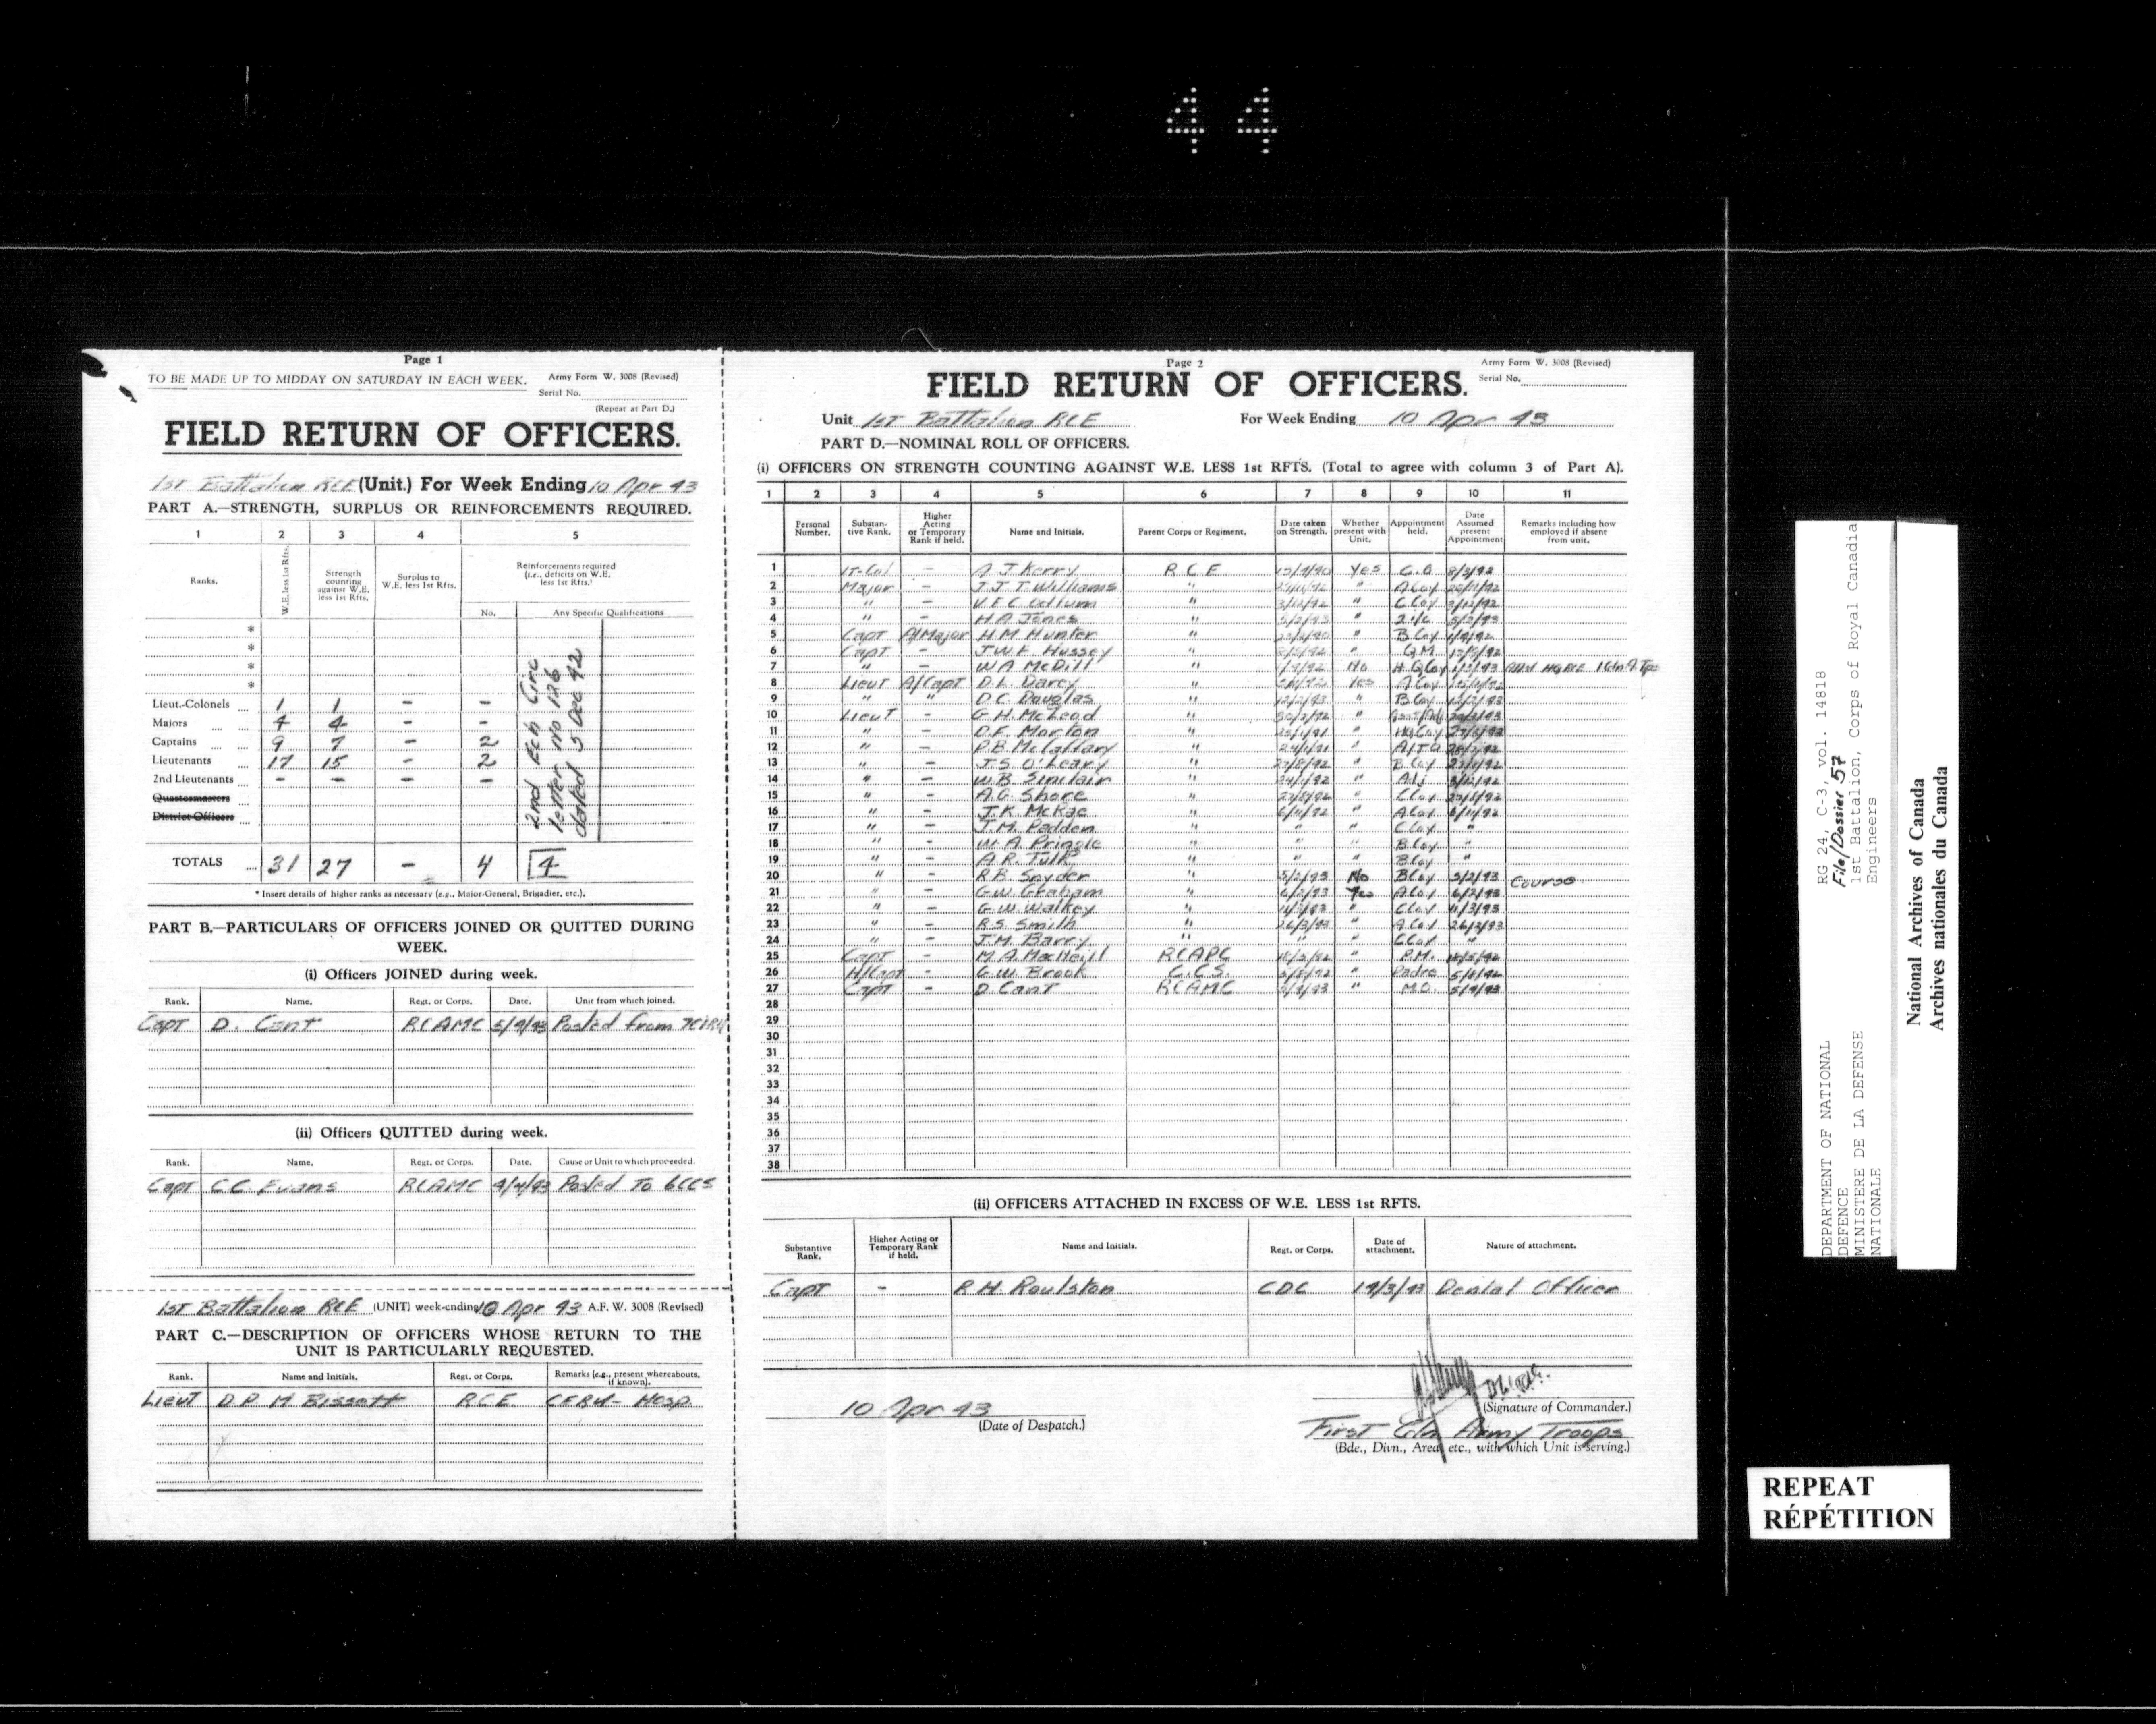 44
Page 1
TO BE MADE UP TO MIDDAY ON SATURDAY IN EACH WEEK.
Army Form W. 3008 (Revised)
Serial No.
(Repeat at Part D.)
FIELD RETURN OF OFFICERS.
1st Battalion RCE (Unit.) For Week Ending 10 Apr 43
PART A.—STRENGTH, SURPLUS OR REINFORCEMENTS REQUIRED.
1 2 3 4 5
Ranks. W.E. less 1st Rfts. Strength counting against W.E. less 1st Rfts. Surplus to W.E. less 1st Rfts. Reinforcements required (i.e., deficits on W.E. less 1st Rfts.)
No. Any Specific Qualifications
*
*
*
*
Lieut.-Colonels 1 1 - -
Majors 4 4 - -
Captains 9 7 - 2
Lieutenants 17 15 - 2
2nd Lieutenants - - - -
Quartermasters
District Officers
2nd Ech Circ
letter No 126
dated 5 Dec 42
TOTALS 31 27 - 4 4
* Insert details of higher ranks as necessary (e.g., Major-General, Brigadier, etc.).
PART B.—PARTICULARS OF OFFICERS JOINED OR QUITTED DURING
WEEK.
(i) Officers JOINED during week.
Rank. Name. Regt. or Corps. Date. Unit from which joined.
Capt D. Cant RCAMC 5/4/43 Posted from
(ii) Officers QUITTED during week.
Rank. Name. Regt. or Corps. Date. Cause or Unit to which proceeded.
Capt C.C. Evans RCAMC 4/4/43 Posted to 6CCS
1st Battalion RCE (UNIT) week-ending 10 Apr 43 A.F. W. 3008 (Revised)
PART C.—DESCRIPTION OF OFFICERS WHOSE RETURN TO THE
UNIT IS PARTICULARLY REQUESTED.
Rank. Name and Initials. Regt. or Corps. Remarks (e.g., present whereabouts, if known).
Lieut D.P.M Bissett RCE CERU - Hosp.
Page 2
Army Form W. 3008 (Revised)
FIELD RETURN OF OFFICERS.
Serial No.
Unit 1st Battalion RCE For Week Ending 10 Apr 43
PART D.—NOMINAL ROLL OF OFFICERS.
(i) OFFICERS ON STRENGTH COUNTING AGAINST W.E. LESS 1st RFTS. (Total to agree with column 3 of Part A).
1 2 3 4 5 6 7 8 9 10 11
Personal Number. Substantive Rank. Higher Acting or Temporary Rank if held. Name and Initials. Parent Corps or Regiment. Date taken on Strength. Whether present with Unit. Appointment held. Date Assumed present Appointment Remarks including how employed if absent from unit.
1 Lt-Col - A J Kerry R C E Yes C.O. 8/3/42
2 Major - J J T Williams " " A Coy
3 " - " " C Coy 2/12/42
4 " - H A Jones " 5/2/43 " 2 i/c 5/2/43
5 Capt A/Major H M Hunter " " B Coy
6 Capt - J.W.E. Hussey " " Q.M.
7 " - W A McDill " No H.Q Coy
8 Lieut A/Capt D.L. Darcy " Yes A Coy
9 " " D C Douglas " 12/2/43 " B Coy
10 Lieut - G H McLeod " 30/3/42 "
11 " - D.F. Morton " 25/1/41 " HQ Coy
12 " - P.B. McCaffary " "
13 " - J.S. O'Leary " 27/8/42 " B Coy
14 " - W B Sinclair " " Adj
15 " - A.G. Shore " " C Coy
16 " - J.K. McKae " 6/11/42 " A Coy 6/11/42
17 " - J.M. Padden " " " C Coy "
18 " - W.A. Pringle " " " B Coy "
19 " - A R. Tulk " " " B Coy "
20 " - R B. Snyder " 5/2/43 No B Coy 5/2/43 Course
21 " - G.W. Graham " 6/2/43 Yes A Coy 6/2/43
22 " - G W Walkey " " C Coy 11/3/43
23 " - R S. Smith " " A Coy
24 " - J.M. Barry " " " C Coy "
25 Capt - M.A. MacNeill RCAPC " P.M.
26 H/Capt - G.W. Brook C.C.S. " Padre
27 Capt - D Cant RCAMC 5/4/43 " M.O. 5/4/43
28
29
30
31
32
33
34
35
36
37
38
(ii) OFFICERS ATTACHED IN EXCESS OF W.E. LESS 1st RFTS.
Substantive Rank. Higher Acting or Temporary Rank if held. Name and Initials. Regt. or Corps. Date of attachment. Nature of attachment.
Capt - R H. Roulston CDC 14/3/43 Dental Officer
10 Apr 43
(Date of Despatch.)
(Signature of Commander.)
First Cdn Army Troops
(Bde., Divn., Area, etc., with which Unit is serving.)
DEPARTMENT OF NATIONAL DEFENCE
MINISTERE DE LA DEFENSE NATIONALE
RG 24, C-3, vol. 14818
File/Dossier 57
1st Battalion, Corps of Royal Canadia
Engineers
National Archives of Canada
Archives nationales du Canada
REPEAT
RÉPÉTITION